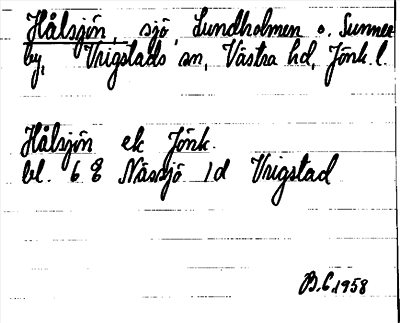 Hålsjön, sjö, Lundholmen o. Sunner
by, Vrigstads sn, Västra hd, Jönk. l.
Hålsjön ek Jönk.
bl. 6 E Nässjö 1d Vrigstad
B.C. 1958